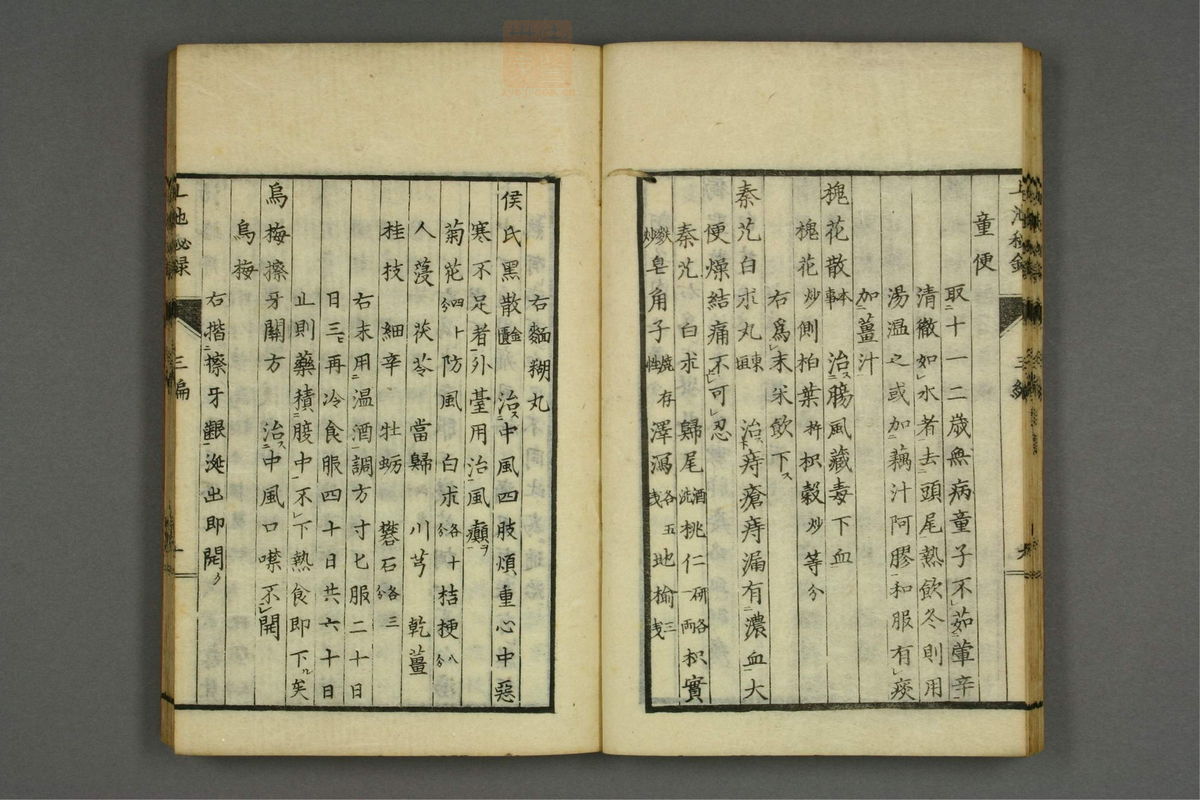 童便
取十一二歳無病童子不茹葷辛
清徹如水者去頭尾熱飲冬則用
湯温之或加藕汁阿膠和服有痰
加薑汁
槐花散本事 治腸風藏毒下血
槐花炒側栢葉杵枳殼炒等分
右爲末米飲下
秦艽白朮丸東垣 治痔瘡痔漏有濃血大
便燥結痛不可忍
秦艽 白朮 歸尾酒洗桃仁研各一兩枳實
麩炒皂角子燒存性澤瀉各五戔地榆三戔
右麵糊丸
侯氏黑散金匱 治中風四肢煩重心中惡
寒不足者外臺用治風癲
菊花四十分防風白朮各十分桔梗八分
人蓡 茯苓 當歸 川芎 乾薑
桂枝 細辛 牡蛎 礬石各三分
右末用温酒調方寸匕服二十日
日三再冷食服四十日共六十日
止則藥積腹中不下熱食即下矣
烏梅擦牙關方 治中風口噤不開
烏梅
右揩擦牙齦涎出即開
上池秘録 三編